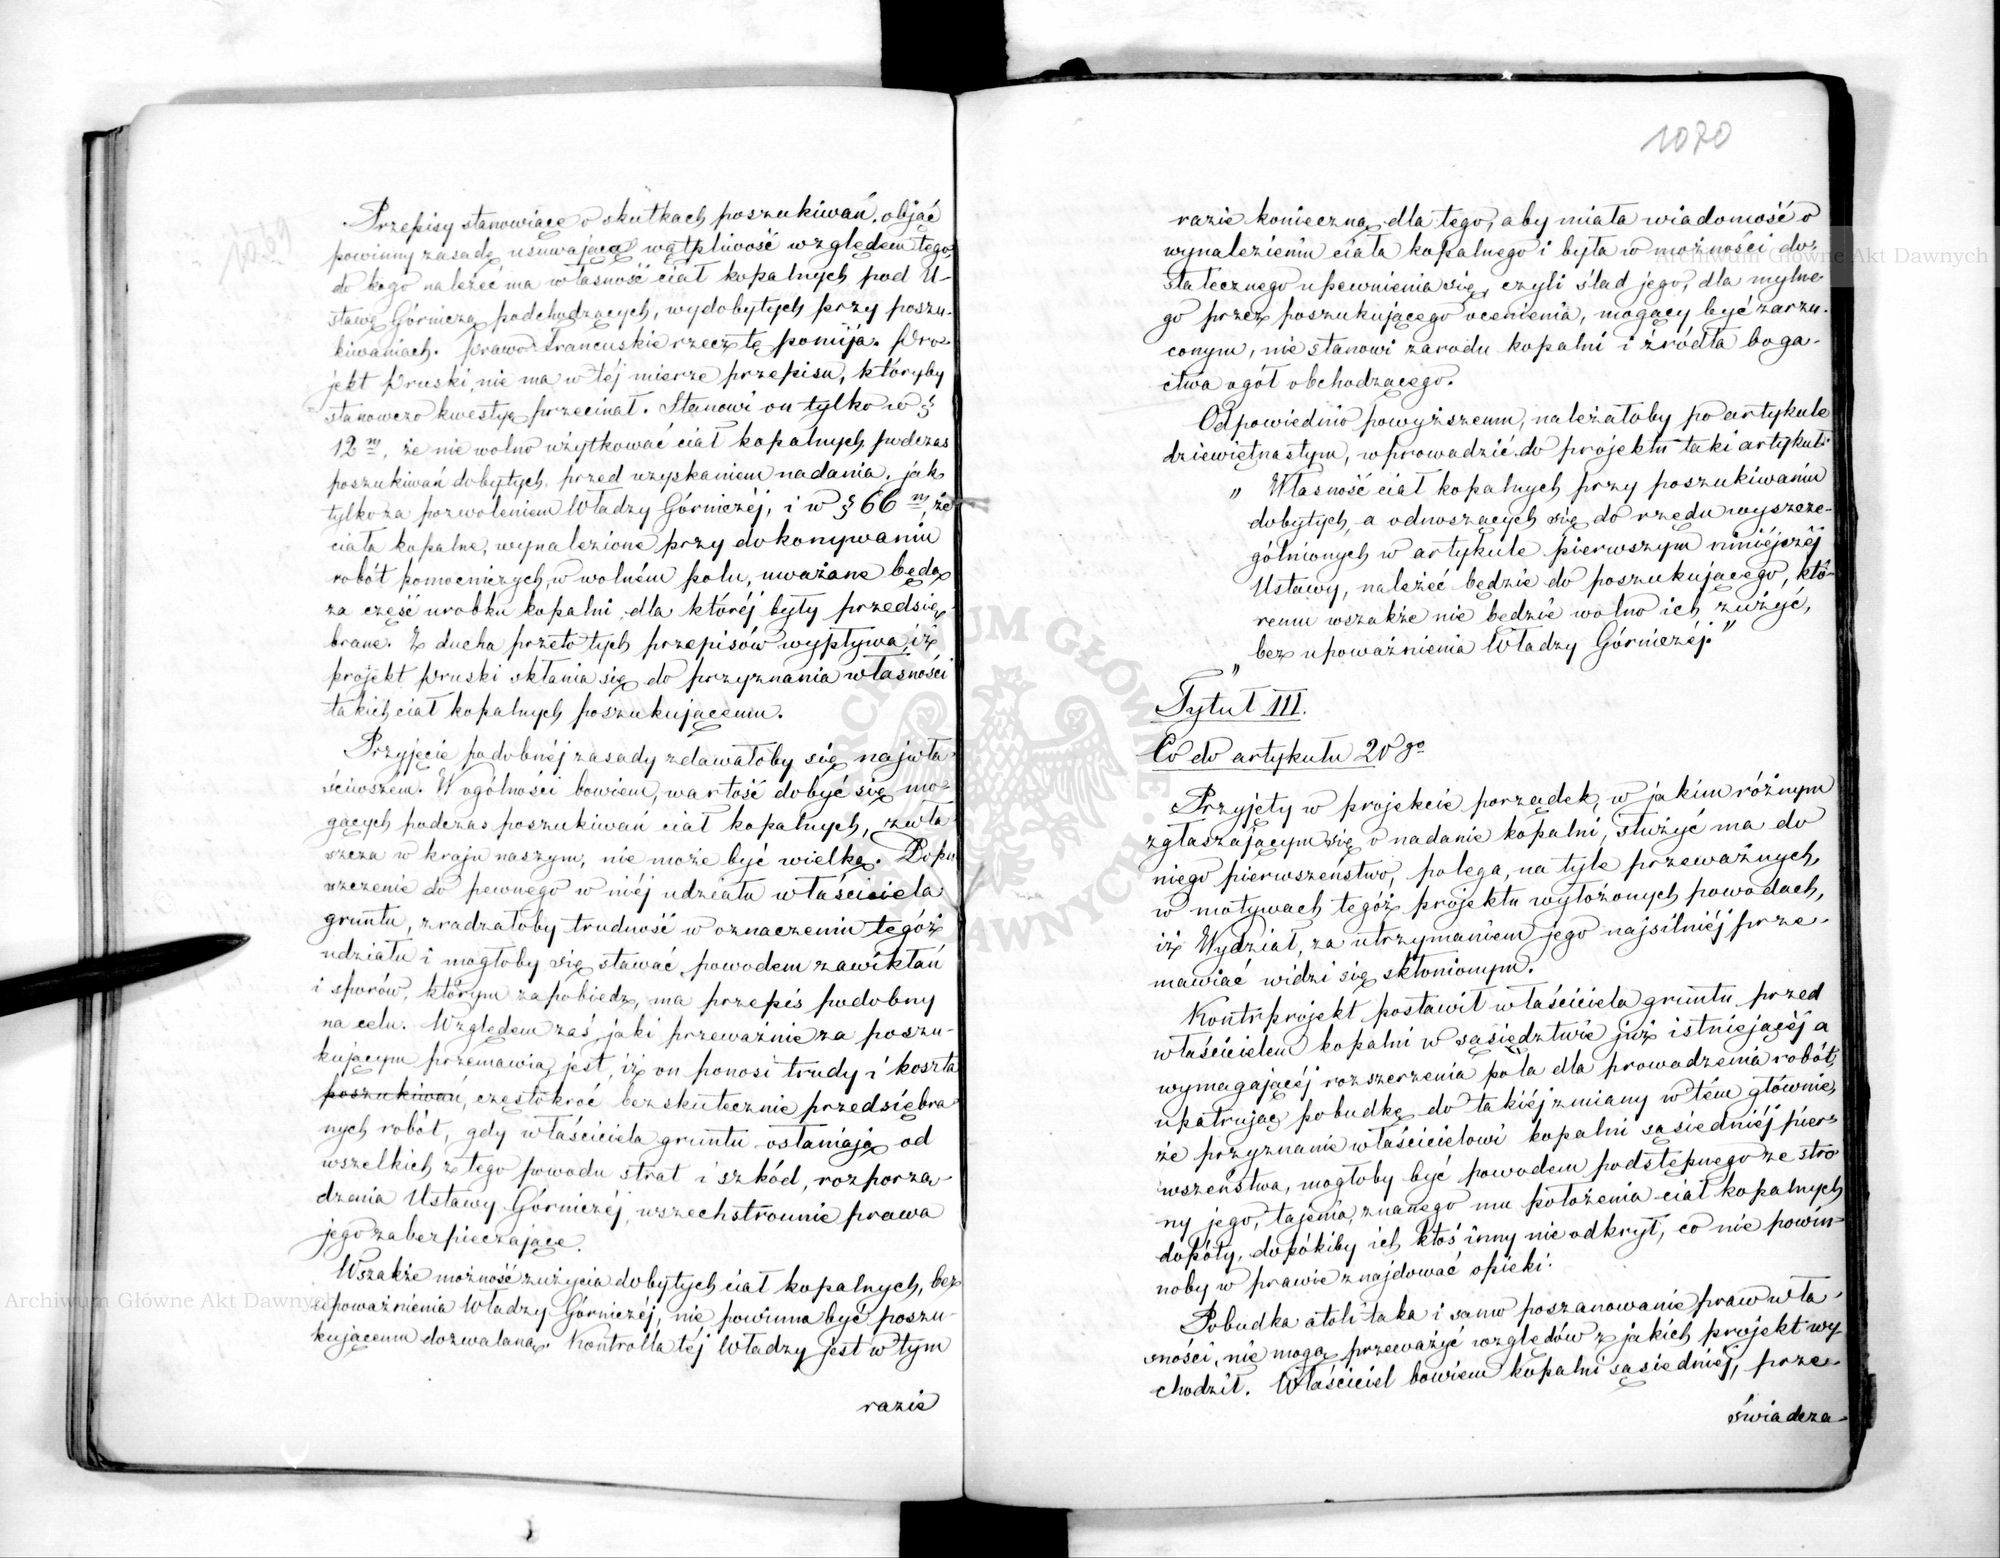 Przepisy stanowiące o skutkach poszukiwań, objąć
powinny zasadę usuwającą wątpliwość względem tego,
do kogo należeć ma własność ciał kopalnych pod U-
stawę Górniczą podchodzących, wydobytych przy poszu-
kiwaniach. Prawo Francuskie rzecz tę pomija. Pro-
jekt Pruski, nie ma w téj mierze przepisu, któryby
stanowczo kwestyę przecinał. Stanowi on tylko w §
12 m, że nie wolno użytkować ciał kopalnych, podczas
poszukiwań dobytych, przed uzyskaniem nadania, jak
tylko za pozwoleniem Władzy Górniczéj, i w § 66 m, że
ciała kopalne, wynalezione przy dokonywaniu
robót pomocniczych, w wolném polu, uważane będą
za część urobku kopalni, dla któréj były przedsię-
brane. Z ducha przeto tych przepisów wypływa, iż
projekt Pruski skłania się do przyznania własności
takich ciał kopalnych poszukującemu.
Przyjęcie podobnéj zasady zdawałoby się najwła-
ściwszem. W ogólności bowiem, wartość dobyć się mo-
gących podczas poszukiwań ciał kopalnych, zwła-
szcza w kraju naszym, nie może być wielką. Dopu-
szczenie do pewnego w niéj udziału właściciela
gruntu, zradzałoby trudność w oznaczeniu tegóż
udziału i mogłoby się stawać powodem zawikłań
i sporów, którym zapobiedz, ma przepis podobny
na celu. Względem zaś, jaki przeważnie za poszu-
kującym przemawia, jest, iż on ponosi trudy i koszta
poszukiwań, częstokroć bezskutecznie przedsiębra-
nych robót, gdy właściciela gruntu osłaniają od
wszelkich z tego powodu strat i szkód, rozporzą-
dzenia Ustawy Górniczéj, wszechstronnie prawa
jego zabezpieczające.
Wszakże możność zużycia dobytych ciał kopalnych, bez
upoważnienia Władzy Górniczéj, nie powinna być poszu-
kującemu dozwalaną. Kontrolla téj Władzy jest w tym
razie
1070
razie konieczną, dla tego, aby miała wiadomość o
wynalezieniu ciała kopalnego i była w możności do-
statecznego upewnienia się, czyli ślad jego, dla mylne-
go przez poszukującego ocenienia, mogący być zarzu-
conym, nie stanowi zarodu kopalni i źródła boga-
ctwa ogół obchodzącego.
Odpowiednio powyższemu, należałoby po artykule
dziewiętnastym, wprowadzić do projektu taki artykuł:
„ Własność ciał kopalnych przy poszukiwaniu
dobytych, a odnoszących się do rzędu wyszcze-
gólnionych w artykule pierwszym niniéjszéj
Ustawy, należeć będzie do poszukującego, któ-
remu wszakże nie będzie wolno ich zużyć,
bez upoważnienia Władzy Górniczéj."
„
Tytuł III.
Co do artykułu 20 go
Przyjęty w projekcie porządek, w jakim różnym
zgłaszającym się o nadanie kopalni, służyć ma do
niego pierwszeństwo, polega, na tyle przeważnych,
w motywach tegóż projektu wyłożonych powodach,
iż Wydział, za utrzymaniem jego najsilniéj prze-
mawiać widzi się skłonionym.
Kontrprojekt postawił właściciela gruntu przed
właścicielem kopalni w sąsiędztwie już istniejącéj a
wymagającéj rozszerzenia pola dla prowadzenia robót,
upatrując pobudkę do takiéj zmiany w tém głównie,
że przyznanie właścicielowi kopalni sąsiedniéj pier-
wszeństwa, mogłoby być powodem podstępnego ze stro-
ny jego, tajenia, znanego mu położenia ciał kopalnych
dopóty, dopókiby ich ktoś inny nie odkrył, co nie powin-
noby w prawie znajdować opieki.
Pobudka atoli taka i samo poszanowanie praw wła-
sności, nie mogą przeważyć względów z jakich projekt wy-
chodził. Właściciel bowiem kopalni sąsiedniéj, prze-
świadcza-
Archiwum Główne Akt Dawnych
Archiwum Główne Akt Dawnych
ARCHIWUM GŁÓWNE AKT DAWNYCH